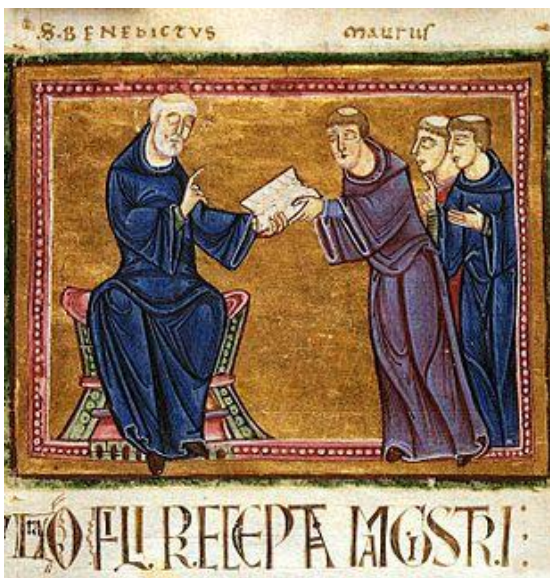 .S. BENEDICTVS MAURUS
O FILI PRECEPTA MAGISTRI: